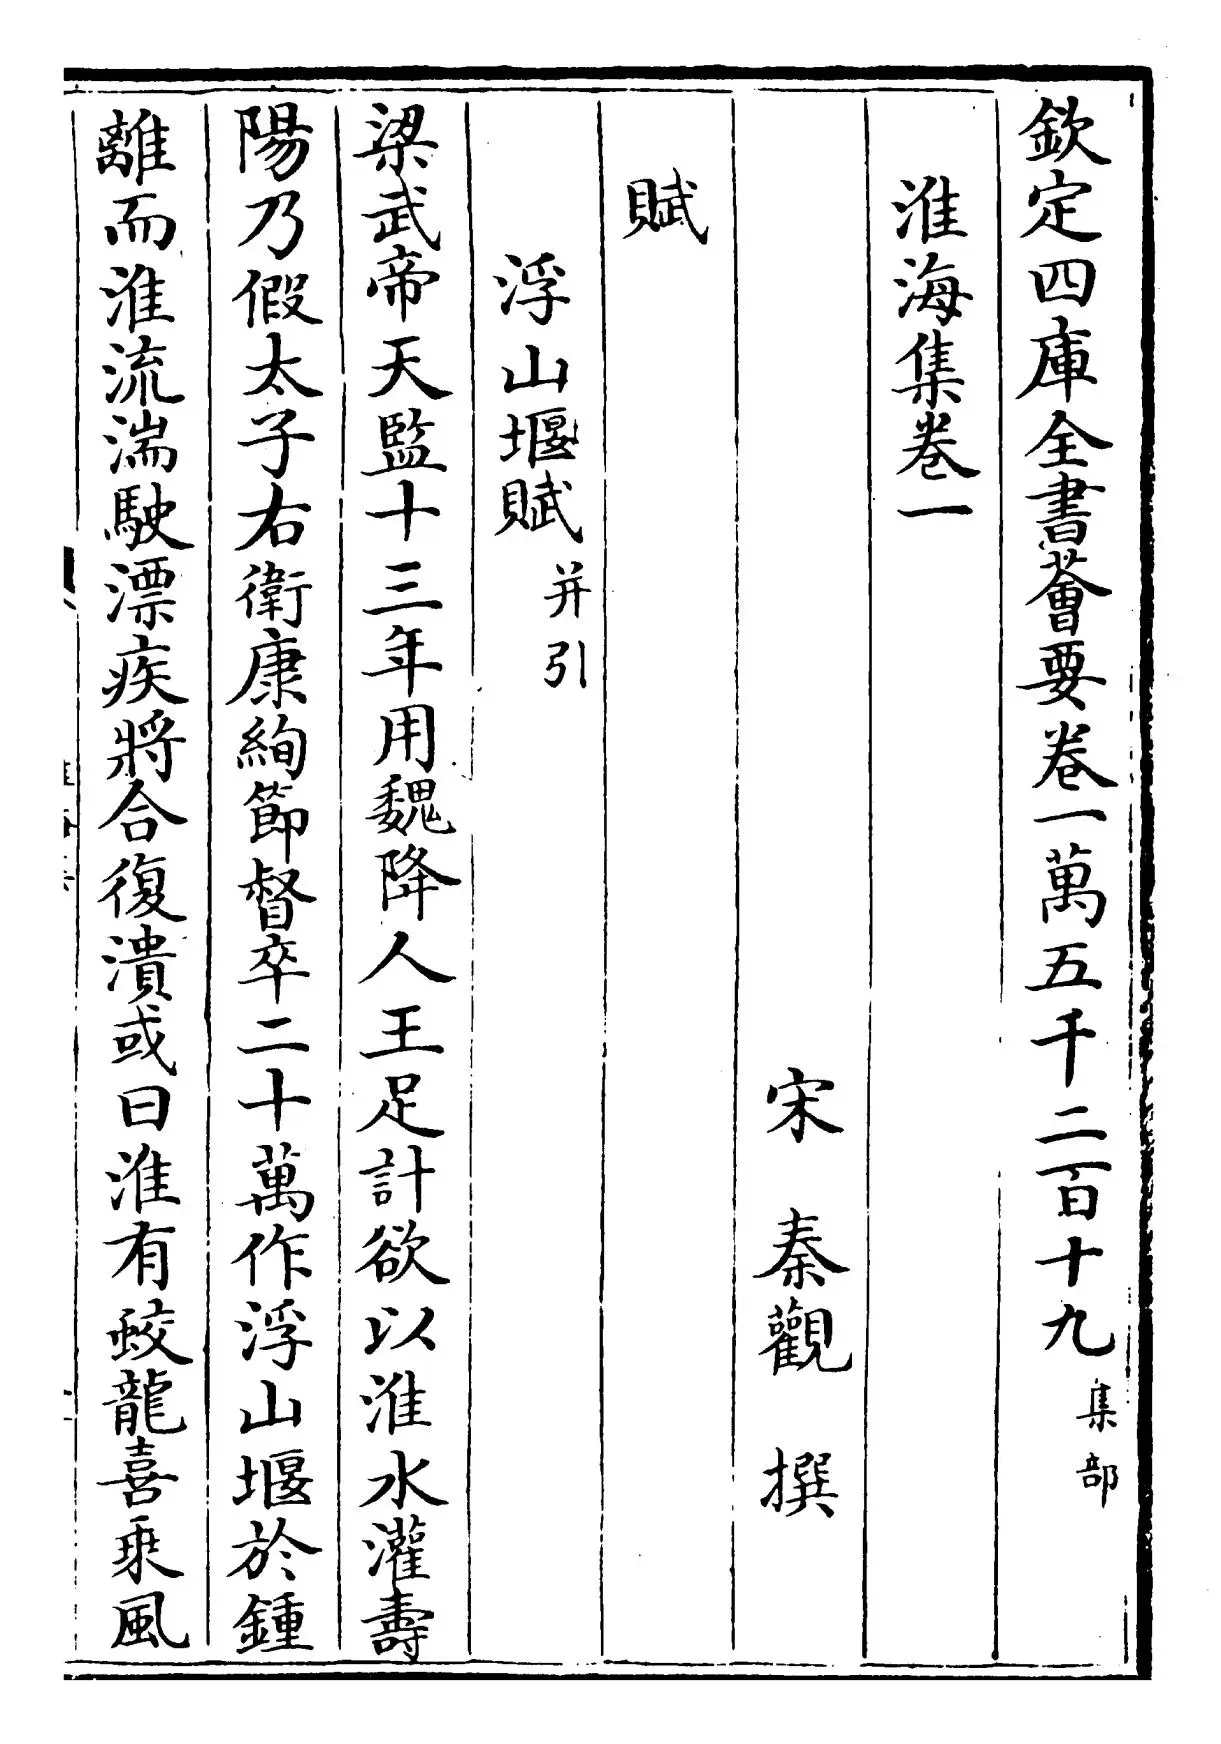 欽定四庫全書薈要卷一萬五千二百十九集部
淮海集卷一
宋 秦觀 撰
賦
浮山堰賦并引
梁武帝天監十三年用魏降人王足計欲以淮水灌壽
陽乃假太子右衛康絢節督卒二十萬作浮山堰於鍾
離而淮流湍駛漂疾將合復潰或曰淮有蛟龍喜乘風